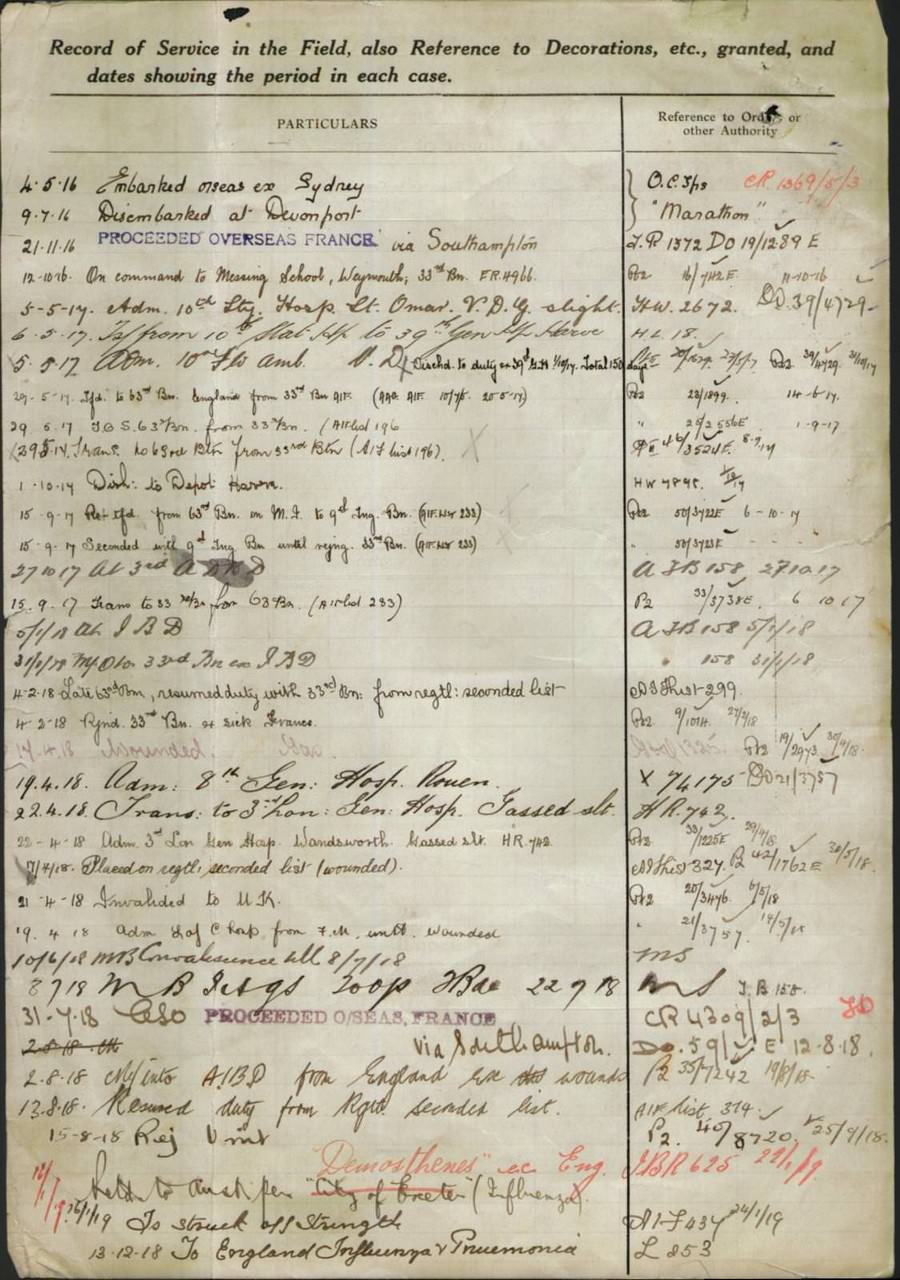 Record of Service in the Field, also Reference to Decorations, etc., granted, and
dates showing the period in each case.
PARTICULARS
Reference to Orders or
other Authority
4.5.16 Embarked orseas ex Sydney O.C. Tps CR 1369/5/3
9.7.16 Disembarked at Devonport "Marathon"
21.11.16 PROCEEDED OVERSEAS FRANCE via Southampton DO 19/1289 E
12-10-16. On command to Messing School, Weymouth; 33rd Bn. ER4966. 16/742E 11-10-16
5-5-17. Adm. 10th Sty. Hosp. St. Omar. V.D.G. slight. HW. 2672. DO.39/4729
6.5.17. Tsf from 10th Stat Hp to 39th Gen Hp Havre HL 18.
5.5.17 Adm. 10th Fld amb. V.D. Dischd. to duty ex 39th G.H. 1/10/17. Total 150 days 39/4729
29.5.17. Tfd. to 63rd Bn. England from 33rd Bn AIF. 23/1899. 14-6-17.
29 5.17 T.O.S. 63rd Bn. from 33rd Bn. (AIF list 196 25/2556E 1-9-17
29.5.17. Trans. to 63rd Btn from 33rd Btn (AIF list 196). 46/3524E
1-10-17 Disch: to Depot Havre. HW 7898.
15-9-17 Re-tfd. from 63rd Bn. to 9th Trg. Bn. (AIF list 233) 50/3722E 6-10-17
15-9-17 Seconded with 9th Trg Bn until rejng. 33rd Bn. (AIF list 233) 50/3723E
27 10 17 At 3rd A D B D A FB 158 27 10 17
15.9.17 Trans to 33rd Bn from 63 Bn. (AIF list 233) 53/3738E. 6 10 17
5/1/18 At I B D A FB 158 5/1/18
31/1/18 M/O to 33rd Bn ex I B D " 158 31/1/18
4-2-18 Late 63rd Bn, resumed duty with 33rd Bn: from regtl: seconded list AIF list 299.
4-2-18 Rjnd. 33rd Bn. ex sick France. 9/1074.
17.4.18 Wounded. Gas 19/2973
19.4.18. Adm: 8th Gen: Hosp. Rouen. X 74175 DO 21/3757
22.4.18. Trans: to 3rd Lon: Gen: Hosp. Gassed slt. HR. 742.
22-4-18 Adm. 3rd Lon Gen Hosp. Wandsworth. Gassed slt. HR.742. 33/1225E
17/4/18. Placed on regtl: seconded list (wounded). AIF list 327. 42/1762E 30/5/18.
21-4-18 Invalided to U.K. 20/3476. 6/5/18
19. 4 18 Adm from wounded 21/3757.
10/6/18 MB Convalescence till 8/7/18 MS
8 7 18 M B 22 9 18 MS
31-7-18 PROCEEDED O/SEAS, FRANCE CR 4309/2/3
2-8-18 via Southampton. Do. 59/ E 12-8-18.
2.8.18 M/ into AIBD from England ex wounds 35/7242 19/8/18
13.8.18. Resumed duty from Rgtl. seconded list. AIF list. 374
15-8-18 Rej Unit P2. 40/8720. 25/9/18.
"Demosthenes" ex Eng. JBR 625 22/1/19
Retn to Aust per "City of Exeter" (Influenza).
16/1/19 To struck off Strength AIF 437 24/1/19
13-12-18 To England Influenza & Pnuemonia L 853